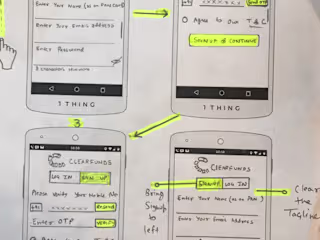 Enter Your Name (as on PanCard)
Enter Your Email Address
Enter Password
8 characters minimum
1 THING
Agree to our T & C
Submit & Continue
1 THING
3
CLEARFUNDS
LOG IN
SIGN UP
Please Verify Your Mobile No.
+91
XXXXXXX
Resend
Enter OTP
Verify
CLEARFUNDS
SIGN UP
LOG IN
Enter Your Name (as on PAN)
Enter Your Email Address
Bring
Signup
to
left
Clear
the
Tagline